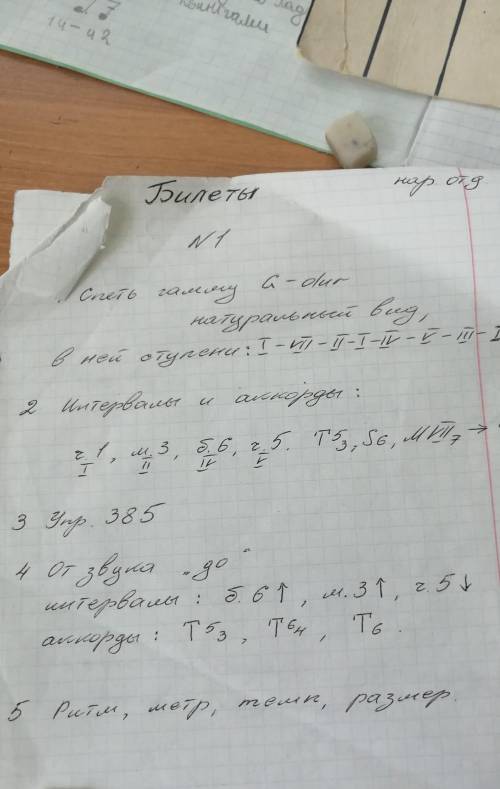 14-42
Билеты
нар. отд
N1
Спеть гамму G-dur
натуральный вид,
в ней ступени: I-VII-II-I-IV-V-III-I
2 Интервалы и аккорды:
ч.1, м.3, б.6, ч.5. Т53, S6, МVII7 →
I II IV V
3 Упр. 385
4 От звука "до"
интервалы: б.6↑, м.3↑, ч.5↓
аккорды: Т53, Т64, Т6.
5 Ритм, метр, темп, размер.